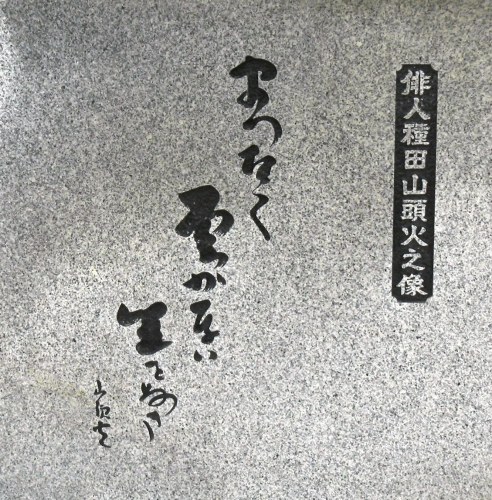 俳人種田山頭火之像
まつたく
雲がない
笠をぬぎ
山頭火